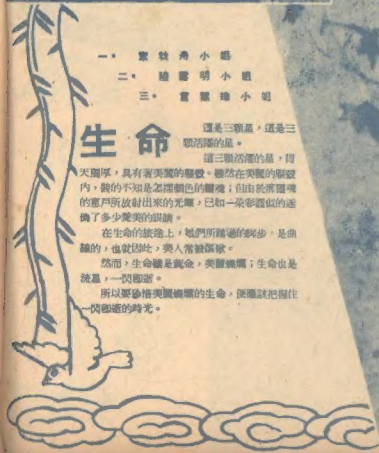 一· 小姐
二· 陸露明小姐
三· 小姐
生命
這是三顆星,這是三
顆活躍的星。
這三顆活躍的星,得
天獨厚,具有著美麗的軀殼。雖然在美麗的軀殼
內,裝的不知是怎樣顏色的靈魂;但由於那靈魂
的窗戶所放射出來的光輝,已如一朵彩雲似的迷
了多少愛美的 。
在生命的旅途上,她們所踏過的脚步,是曲
線的,也就因此,美人常被 。
然而,生命雖是黃金,美麗燦爛;生命也是
流星,一閃即逝。
所以要珍惜美麗燦爛的生命,便應該把握住
一閃即逝的時光。